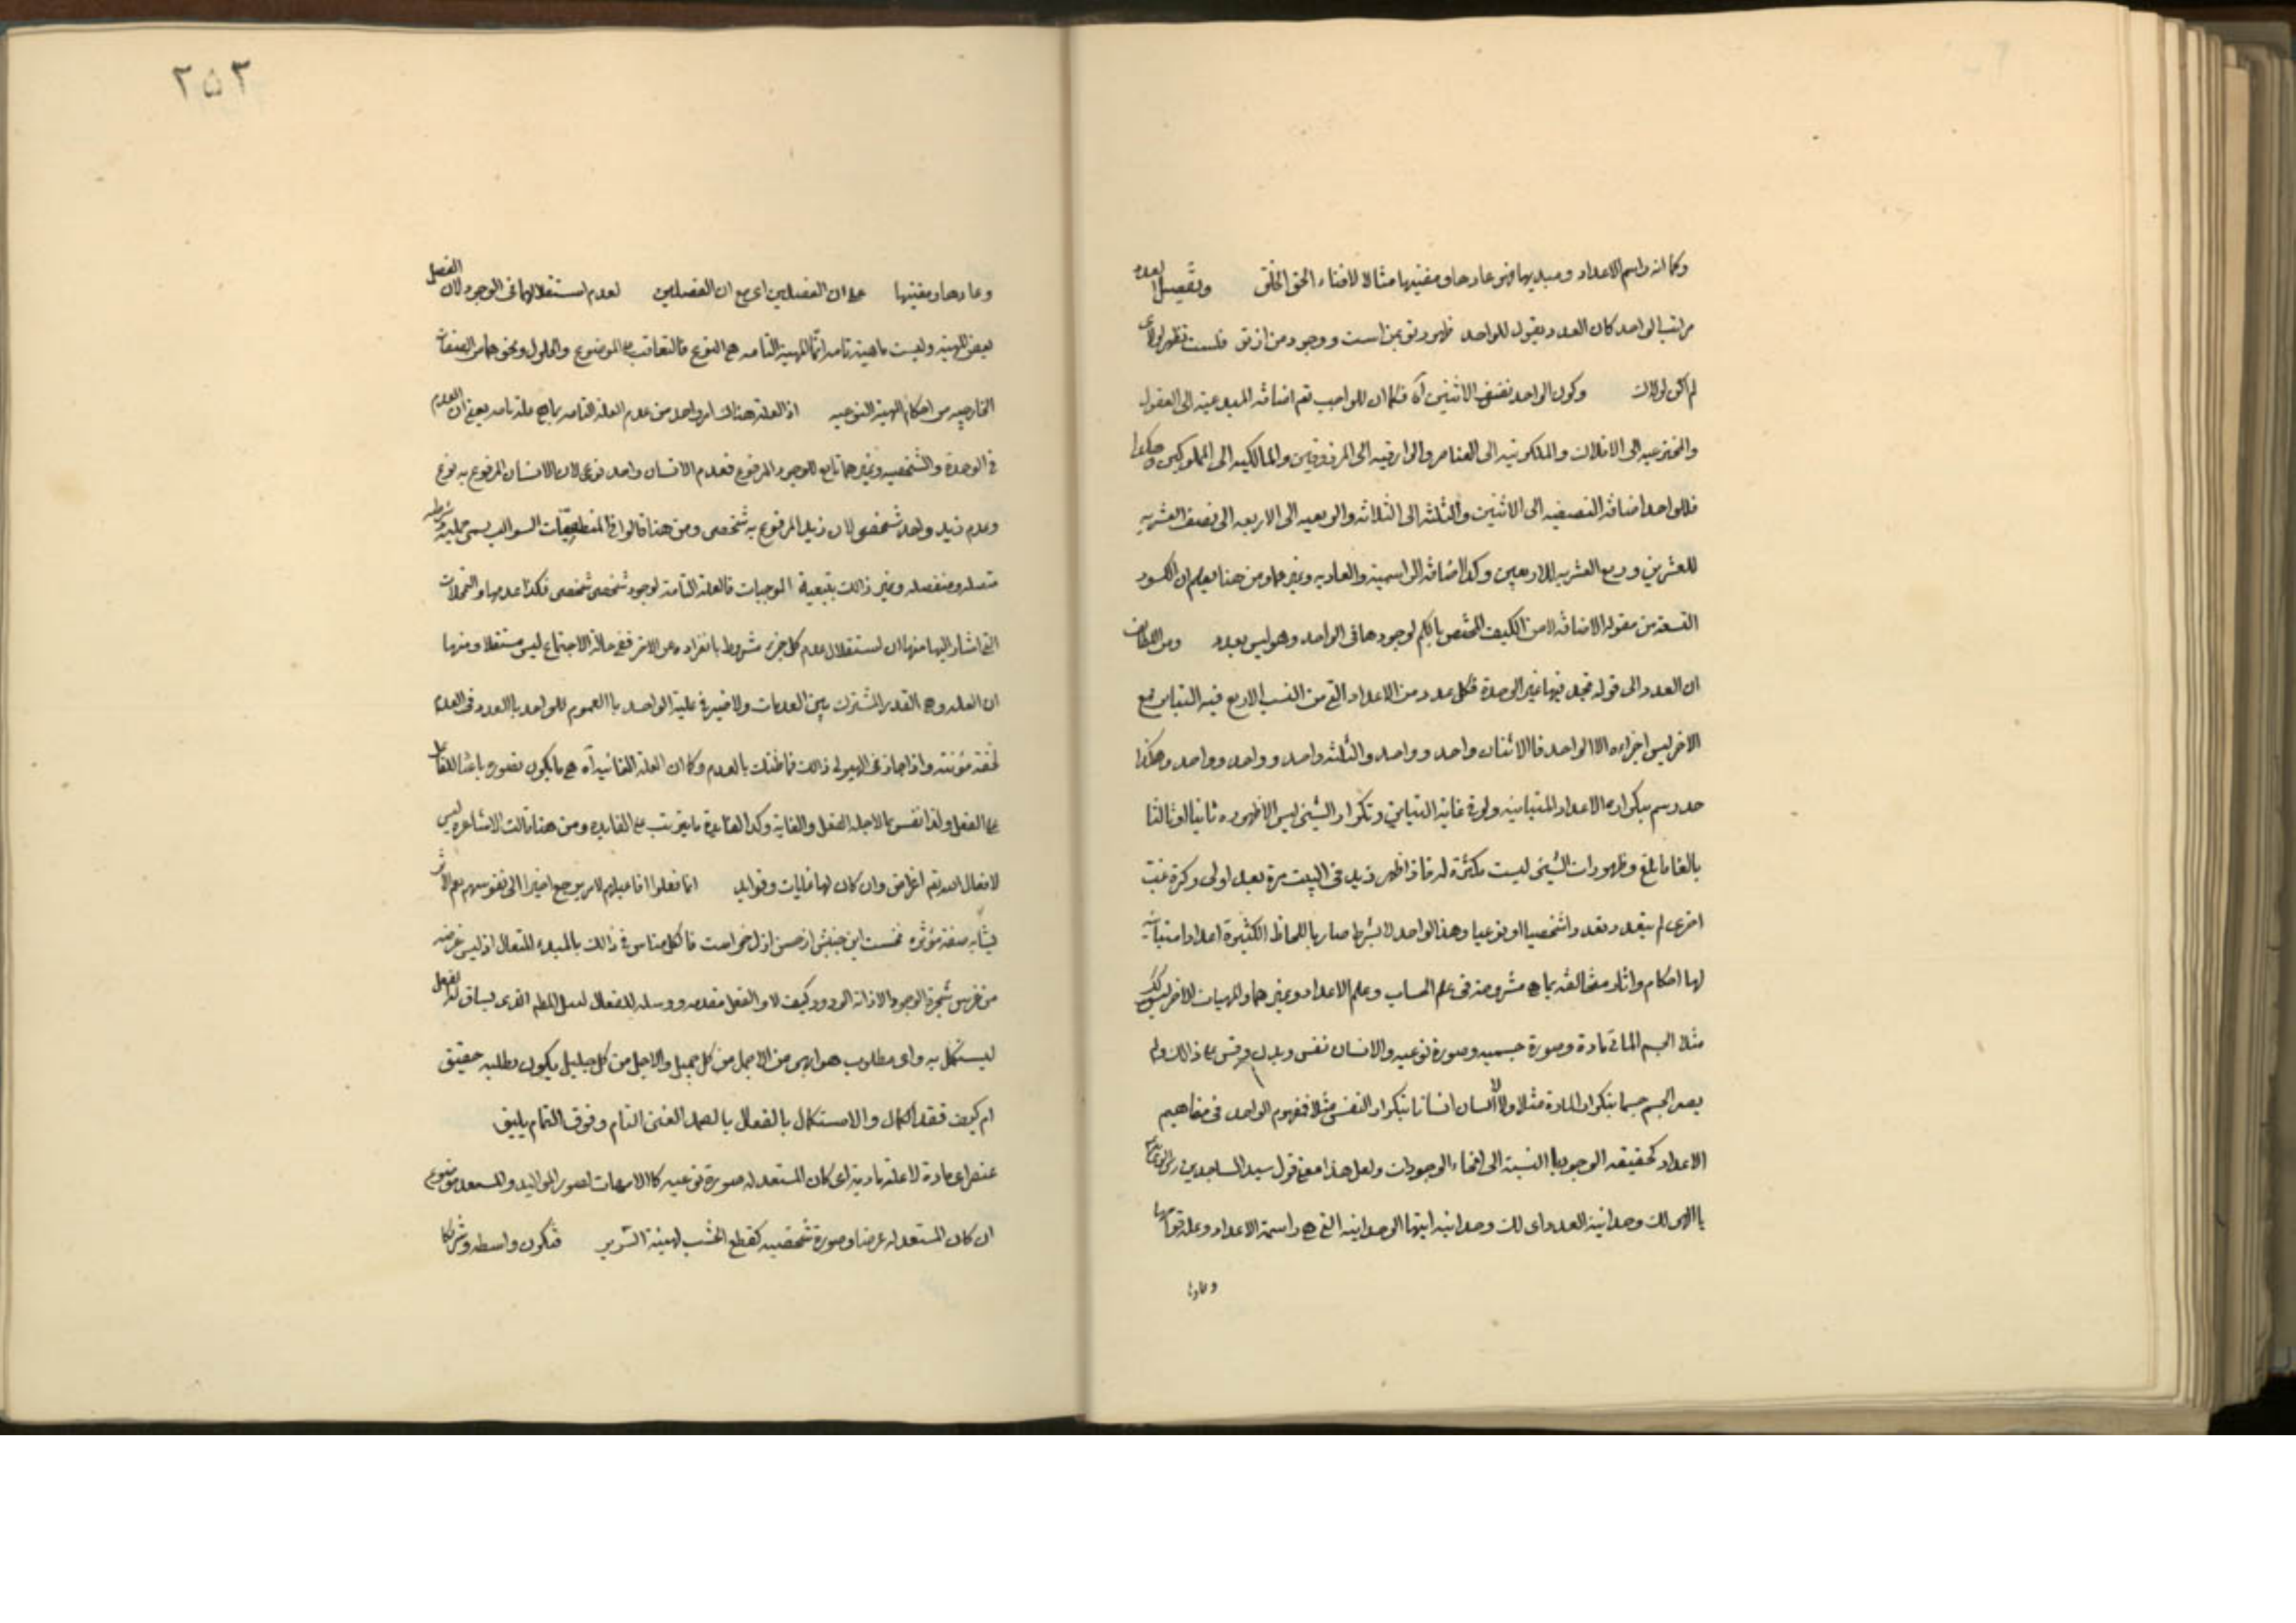 وكما انه راسم الاعداد ومبديها فهو عادها ومفنيها مثالا لافناء الحق الخلق وتفصيل العدد
مراتب الواحد كان العدد يقول للواحد ظهور تو بمن است ووجود من از تو فلست تظهر لولای
لم اكن لولاك وكون الواحد نصف الاثنين آه فكما ان للواجب تعم اضافة المبدعية الى العقول
والمخترعيه الى الافلاك والمكونيه الى العناصر والرازقيه الى المرزوقين والمالكيه الى المملوكين وهكذا
فللواحد اضافة النصفيه الى الاثنين والثلثيه الى الثلاثه والربعيه الى الاربعه الى نصف العشريه
للعشرين وربع العشريه للاربعين وكذا اضافة الراسمية والعاديه وغيرهما ومن هنا يعلم ان الكسور
التسعة من مقوله الاضافة لا من الكيف المختص بالكم لوجودها فى الواحد وهو ليس بعدد ومن اللطايف
ان العدد الى قوله تجد فيها غير الوحدة فكل عدد من الاعداد التى من النسب الاربع فيه التباين مع
الاخر ليس اجزاءه الا الواحد فالاثنان واحد وواحد والثلثه واحد وواحد وواحد وهكذا
حد رسم بتكراره الاعداد المتباينه ولو فى غاية التباين وتكرار الشيئ ليس الا ظهوره ثانيا او ثالثا
بالغا ما بلغ وظهورات الشيئ ليست مكثرة له فاذا ظهر زيد فى البيت مرة بعد اولى وكرة غب
اخرى لم يتعدد تعددا شخصيا او نوعيا وهذا الواحد لا بشرط صار باللحاظ الكثيرة اعدادا متباينة
لها احكام واثار مختالفه بما هى مشروحة فى علم الحساب وعلم الاعداد وغيرهما والمهيات الاخر ليس كذلك
مثلا الجسم مادة وصورة جسميه وصورة نوعيه والانسان نفس وبدن وقس على ذالك ولم
يصر الجسم جسما بتكرار المادة مثلا ولا الانسان انسانا بتكرار النفس مثلا فمفهوم الواحد فى مفاهيم
الاعداد كحقيقه الوجود بالنسبة الى انحاء الوجودات ولعل هذا معنى قول سيد الساجدين
يا الهى لك وحدانية العدد اى لك وحدانيه ايتها الوحدانيه التى هى راسمة الاعداد وعلة قوامها
وعادها
٢٥٢
وعادها ومفنيها على ان الفصلين اى مع ان الفصلين لعدم استقلالهما فى الوجود لان الفصل
بعض المهية وليست ماهية تامة انما المهية التامه هى النوع فالتعاقب على الموضوع والحلول ونحوهما من الصفات
الخارجيه من احكام المهية النوعيه اذ العلة هناك امر واحد من عدم العلة التامه بما هى علة تامه يعنى ان العدم
فى الوحدة والشخصيه وغيرهما تابع للوجود المرفوع فعدم الانسان واحد نوعى لان الانسان المرفوع به نوع
وعدم زيد واحد شخصى لان زيد المرفوع به شخصى ومن هنا قالوا فى المنطقيات السوالب يسمى حمليه وشرطيه
متصله ومنفصله وغير ذالك بتبعية الموجبات فالعلة التامة لوجود شخصى شخصى فكذا عدمها والتمحلات
التى اشار اليها منها ان استقلال عدم كل جزء مشروط بانفراده عن الاخر ففى حالة الاجتماع ليس مستقلا ومنها
ان العلة هى القدر المشترك بين العدمات ولا ضير فى علية الواحد بالعموم للواحد بالعدد فى العدم
لخفة مؤنته واذا جاز فى الهيولى ذالك فما ظنك بالعدم وكما ان العلة الغائيه آه هى ما يكون تصوره باعثا للفاعل
على الفعل ولذا تفسر بما لاجله الفعل والغاية وكذا الفائدة ما يترتب على الفائده ومن هنا قالت الاشاعره ليس
لافعال الله تعم اغراض وان كان لها غايات وفوايد انما فعلوا افاعيلهم لامر يرجع اخيرا الى نفوسهم
نخست این جنبش از حسن ازل خواست فالكل متاس فى ذالك بالمبدء المتعال اذ ليس غرضه
من غرس شجرة الوجود الا ذاته الودود كيف لا والفعل مقدمه ووسيله الذى يساق له الفعل
ليستكمل به واى مطلوب هو ابهى من الاجمل من كل جميل والاجل من كل جليل يكون مطلبه حقيق
ام كيف فقد الكمال والاستكمال بالفعال بالصمد الغنى التام وفوق التمام يليق
عنصر اى مادة لا علة ماديه اى كان المستعد له صورة نوعيه كالامهات لصور المواليد والمستعد موضوع
ان كان المستعد له عرضا وصورة شخصيه كقطع الخشب لهيئة السرير فتكون واسطه وشريكا